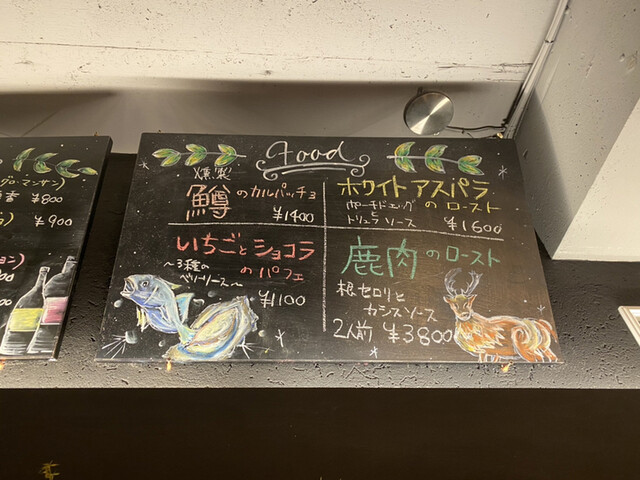 グロ・マンサン)
¥800
¥900
Food
燻製
鱒のカルパッチョ
¥1400
ホワイトアスパラ
のロースト
ポーチドエッグ
と
トリュフソース
¥1600
いちごとショコラ
のパフェ
~3種の
ベリーソース~
¥1100
鹿肉のロースト
根セロリと
カシスソース
2人前 ¥3800